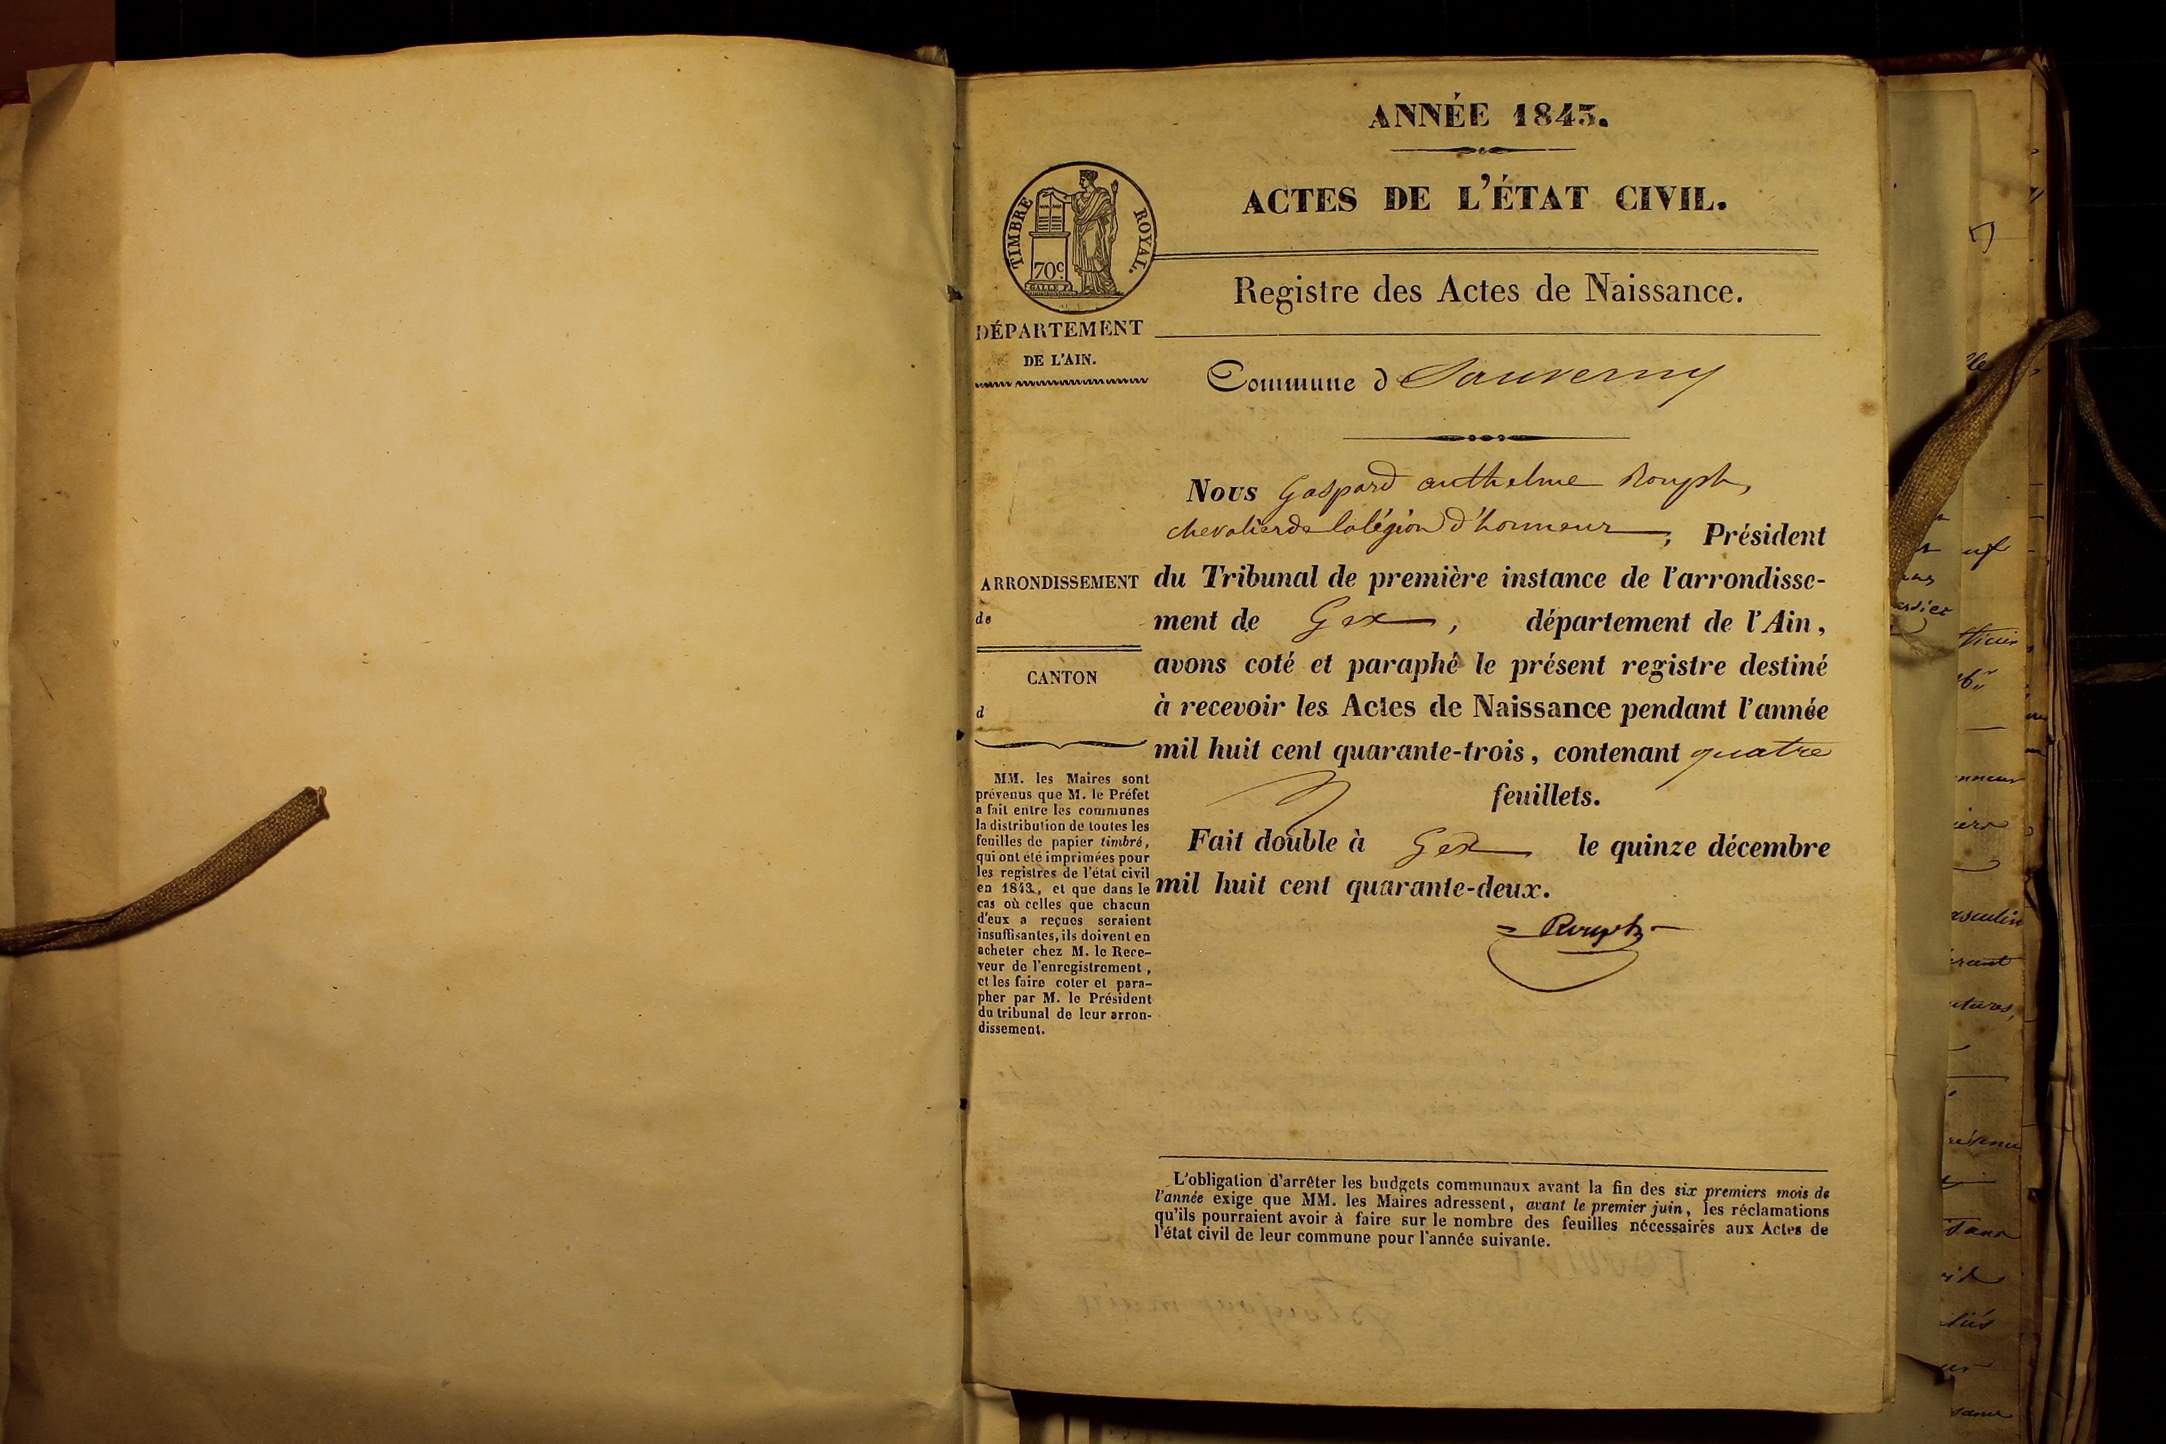 ANNÉE 1843.
ACTES DE L'ÉTAT CIVIL.
TIMBRE ROYAL.
70c.
Registre des Actes de Naissance.
DÉPARTEMENT
DE L'AIN.
Commune d Sauverny
Nous Gaspard anthelme Rouph,
chevalier de la légion d'honneur, Président
ARRONDISSEMENT
de
du Tribunal de première instance de l'arrondisse-
ment de Gex, département de l'Ain,
avons coté et paraphé le présent registre destiné
à recevoir les Actes de Naissance pendant l'année
mil huit cent quarante-trois, contenant quatre
feuillets.
Fait double à Gex le quinze décembre
mil huit cent quarante-deux.
Rouph
CANTON
d
MM. les Maires sont
prévenus que M. le Préfet
a fait entre les communes
la distribution de toutes les
feuilles de papier timbré,
qui ont été imprimées pour
les registres de l'état civil
en 1843, et que dans le
cas où celles que chacun
d'eux a reçues seraient
insuffisantes, ils doivent en
acheter chez M. le Rece-
veur de l'enregistrement,
et les faire coter et para-
pher par M. le Président
du tribunal de leur arron-
dissement.
L'obligation d'arrêter les budgets communaux avant la fin des six premiers mois de
l'année exige que MM. les Maires adressent, avant le premier juin, les réclamations
qu'ils pourraient avoir à faire sur le nombre des feuilles nécessaires aux Actes de
l'état civil de leur commune pour l'année suivante.